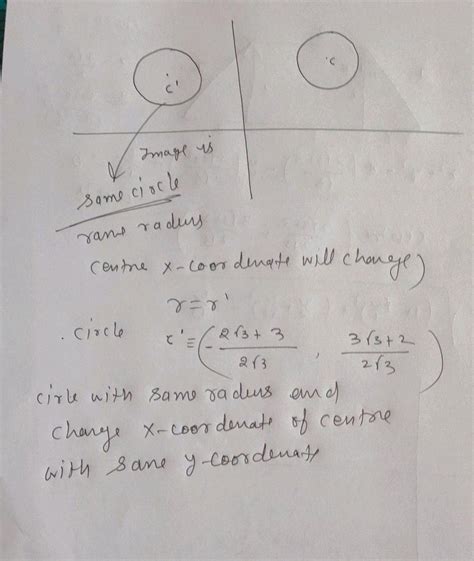 .c'
.c
Image is
same circle
same radius
centre x-coordenate will change)
r=r'
. circle c' ≡ (- 2√3+3 / 2√3 , 3√3+2 / 2√3)
cirle with same radius and
change x-coordenate of centre
with sane y-coordenate